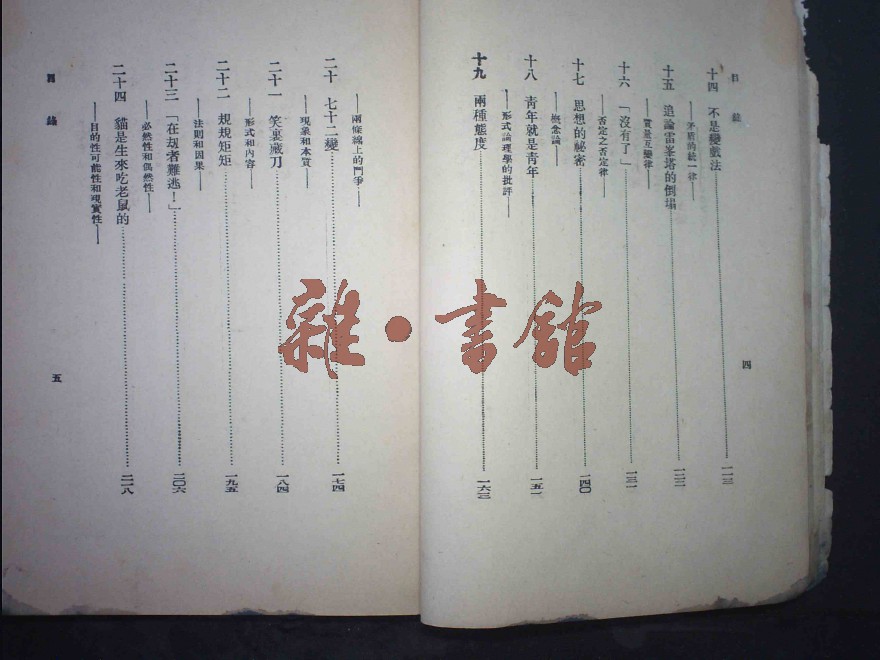 目錄
十四 不是變戲法……一一三
——矛盾的統一律——
十五 追論雷峯塔的倒塌……一二二
——質量互變律——
十六 「沒有了」……一三一
——否定之否定律——
十七 思想的秘密……一四〇
——概念論——
十八 靑年就是靑年……一五一
——形式論理學的批評——
十九 兩種態度……一六三
四
——兩條線上的鬥爭——
二十 七十二變……一七四
——現象和本質——
二十一 笑裏藏刀……一八四
——形式和內容——
二十二 規規矩矩……一九五
——法則和因果——
二十三 「在劫者難逃！」……二〇六
——必然性和偶然性——
二十四 貓是生來吃老鼠的……二一八
——目的性可能性和現實性——
目錄
五
雜·書館